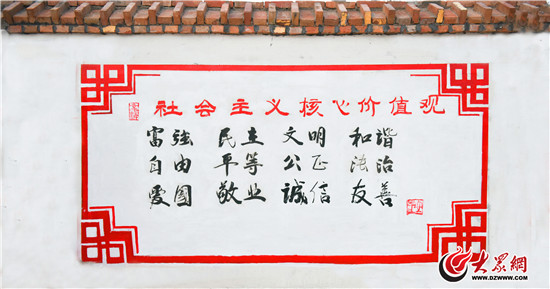 社会主义核心价值观
富强 民主 文明 和谐
自由 平等 公正 法治
爱國 敬业 诚信 友善
大眾網
WWW.DZWWW.COM